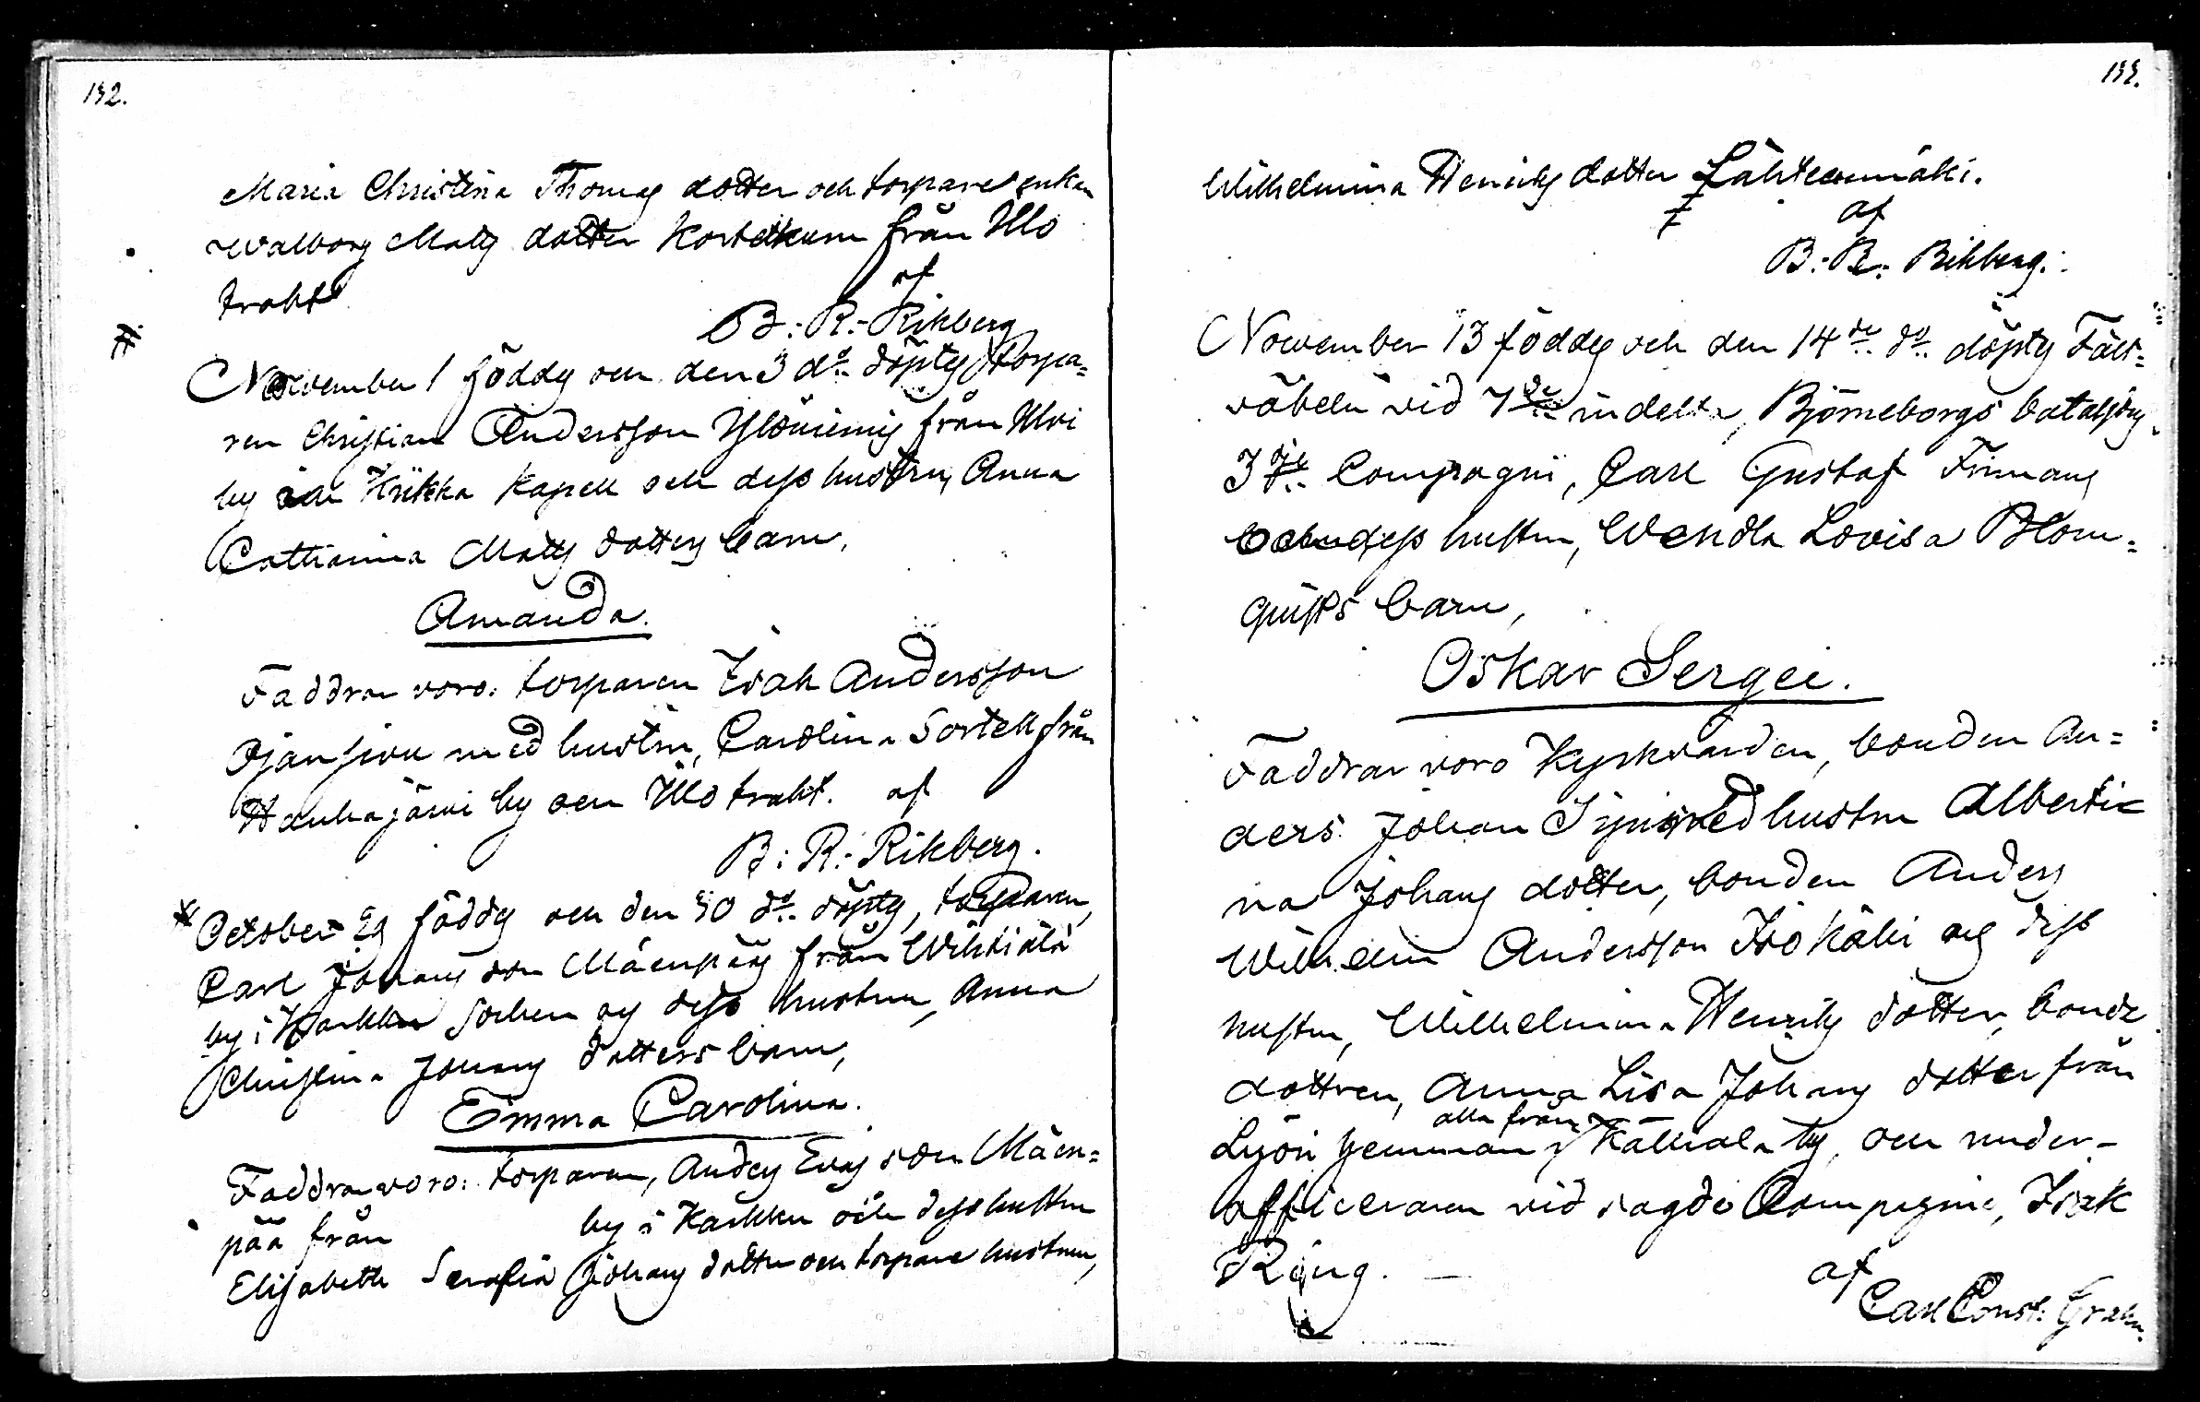 132.
Maria Christina Thomas dotter och torpare enkan
Walborg Matts dotter från Ulo
trakt
af
B: R: Rikberg
November 1 föddes och den 3 do döptes torpa=
ren Christian Andersson från Ulvi
by i Kapell och dess hustru, Anna
Catharina Matts dotters barn,
Amanda.
Faddrar voro: torparen Isak Andersson
Ojansivu med hustru, Carolina Sortell från
Hanhajärvi by och Ulo trakt. af
B: R: Rikberg.
October 29 föddes och den 30 do döptes, torparen,
Carl Johans son Mäenpääs från
by i Karkku Socken och dess hustru, Anna
Christina Johans dotters barn,
Emma Carolina.
Faddrar voro: torparen, Anders Ers son Mäen=
pää från by i Karkku och dess hustru
Elisabeth Serafia Johans dotter och torpare hustrun,
133.
Wilhelmina Henriks dotter Lähteenmäki.
af
B: R: Rikberg.
November 13 föddes och den 14de do döptes Fält=
väbeln vid 7de indelta, Björneborgs bataljons
3dje Compagni, Carl Gustaf Frimans
och dess hustru, Wendla Lovisa Blom=
quists barn,
Oskar Sergei.
Faddrar voro Kyrkvärden, bonden An=
ders Johan med hustru Alberti=
na Johans dotter, bonden Anders
Wilhelm Andersson Isokäki och dess
hustru, Wilhelmina Henriks dotter, bonde
dottren, Anna Lisa Johans dotter från
alla från
by, och under-
officeraren vid sagde Compagnie, Isak
Ring.
af
Carl Const: Grahn.